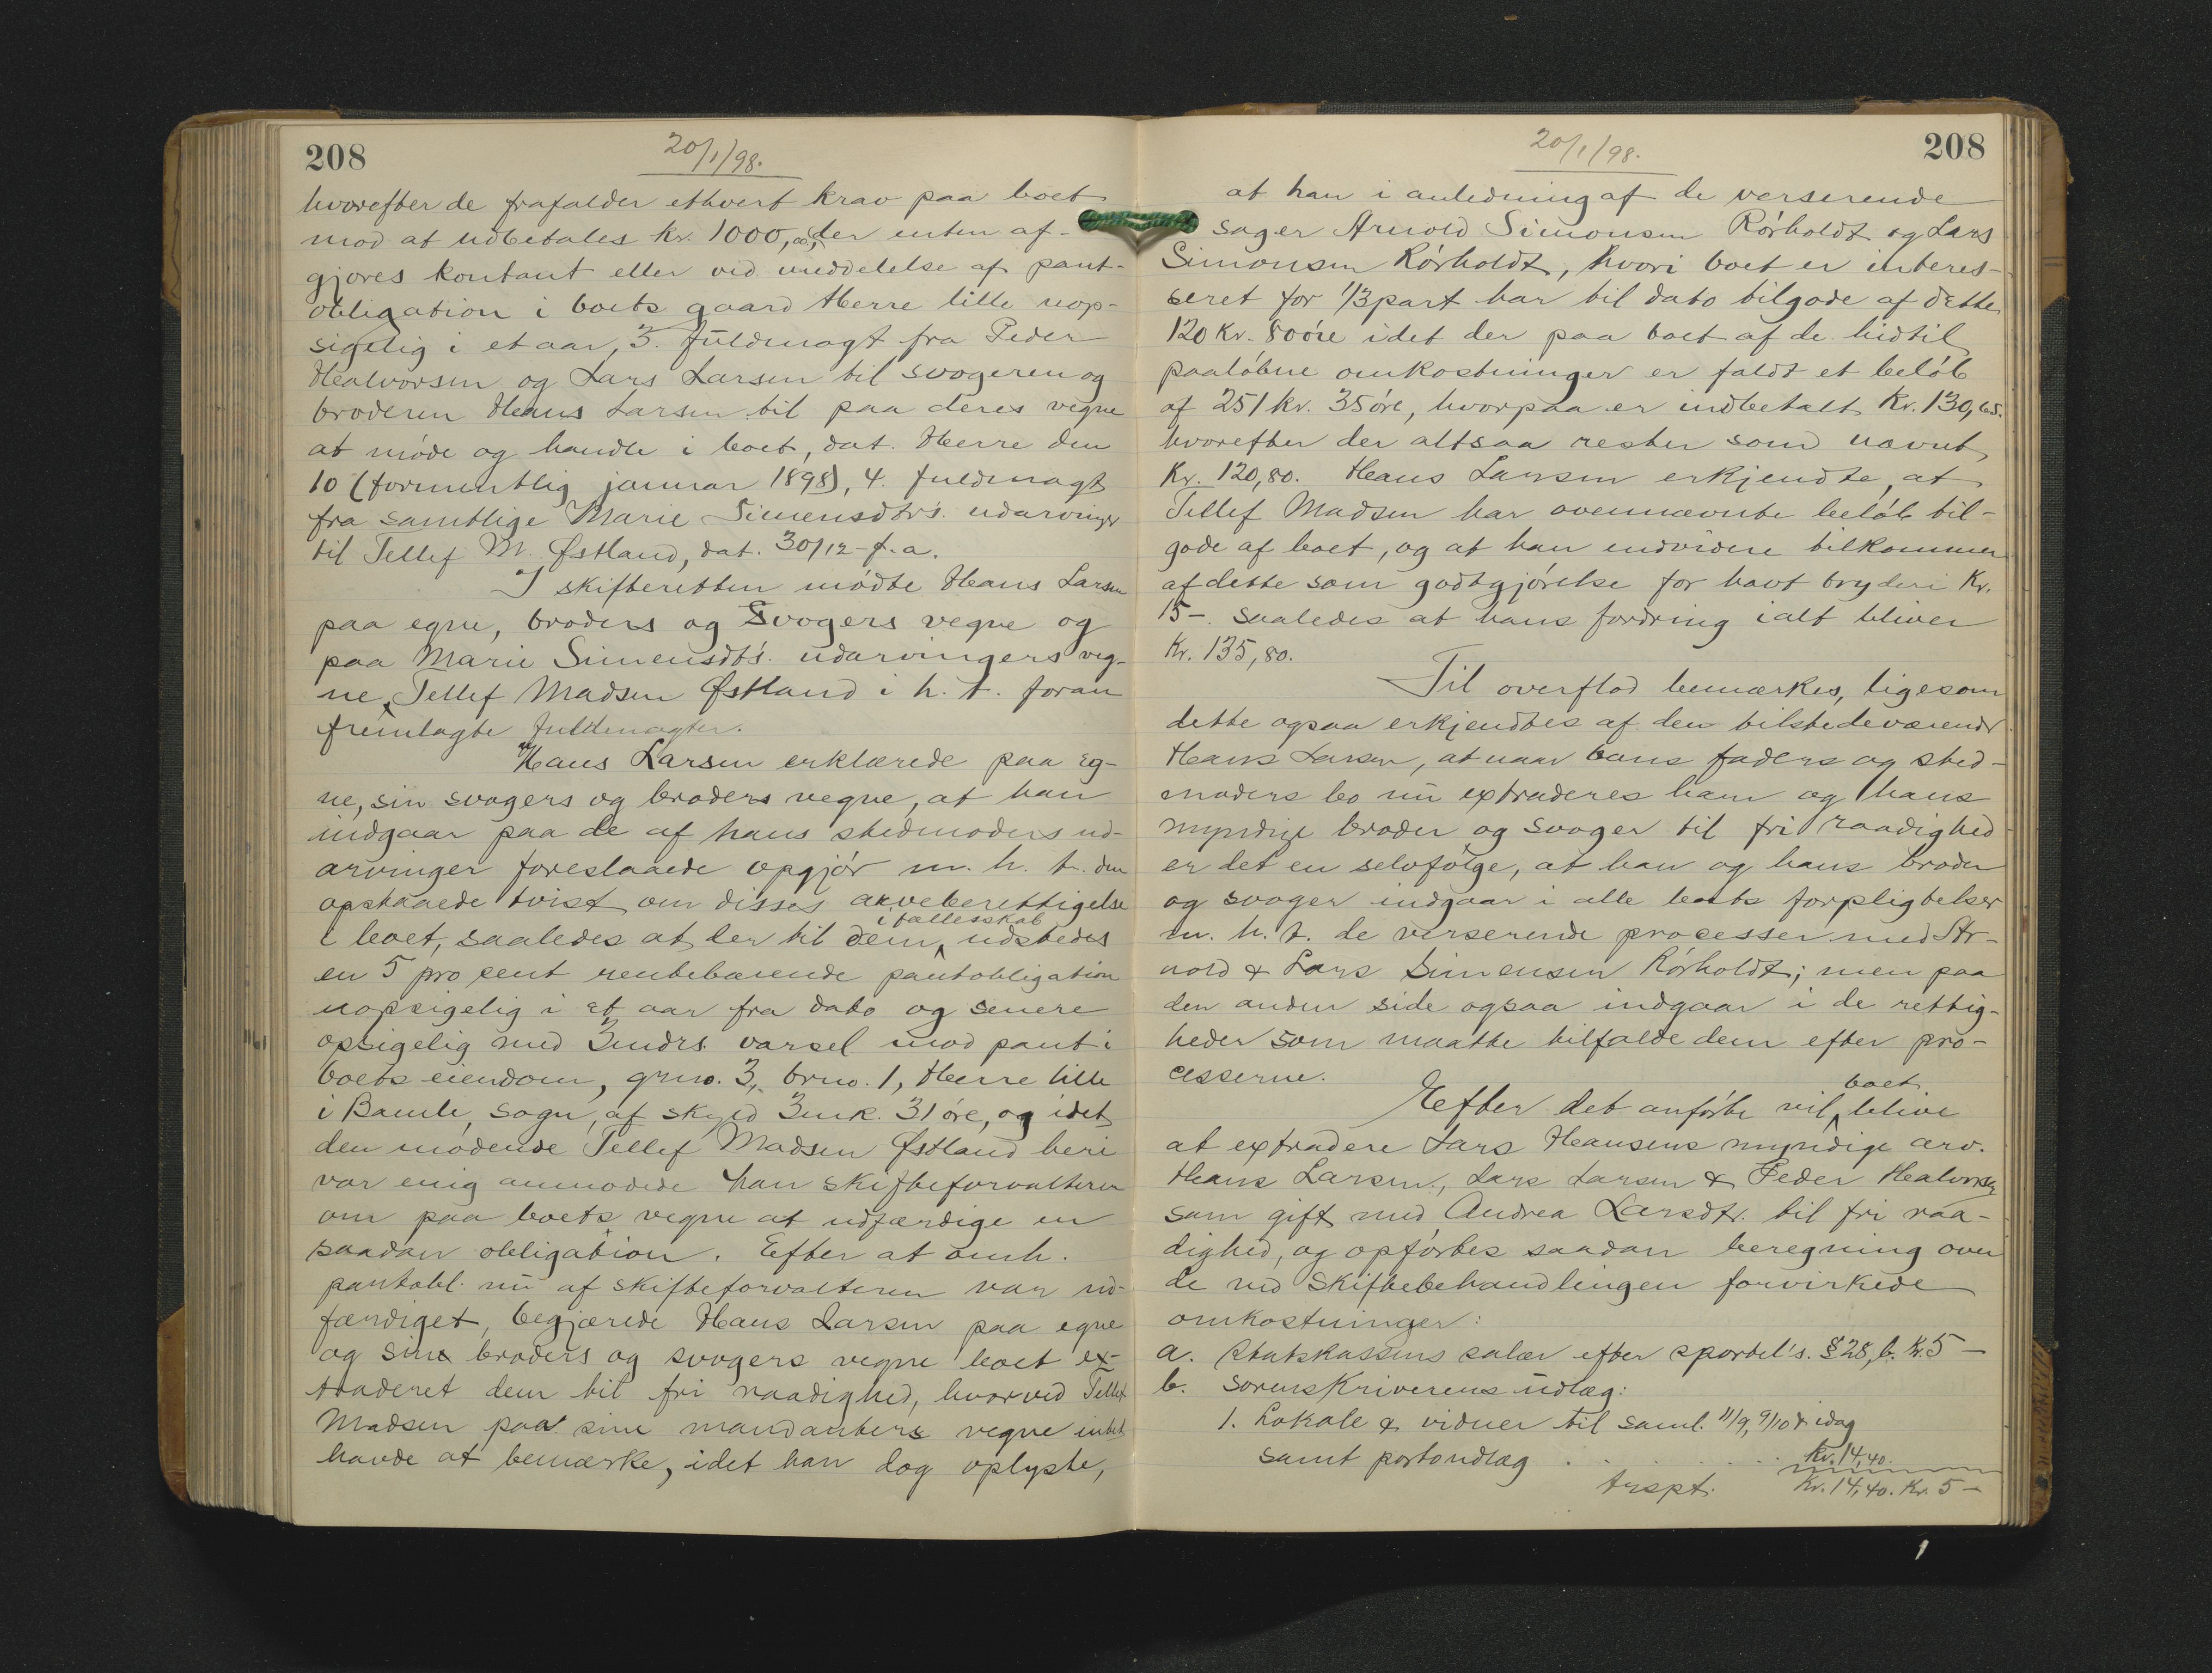 208
20/1/98.
hvorefter de frafalder ethvert krav paa boet
mod at udbetales kr. 1000,00, der enten af-
gjøres kontant eller ved meddelelse af pant-
obligation i boets gaard Herre lille uop-
sigelig i et aar, 3. fuldmagt fra Peder
Halvorsen og Lars Larsen til svogeren og
broderen Hans Larsen til paa deres vegne
at møde og handle i boet, dat. Herre den
10 (formentlig januar 1898), 4. fuldmagt
fra samtlige Marie Simensdtr's. udarvinger
til Tellef M. Østland, dat. 30/12 f. a.
I skifteretten mødte Hans Larsen
paa egne, broders og Svogers vegne og
paa Marie Simensdt's. udarvingers veg-
ne, Tellef Madsen Østland i h. t. foran
fremlagte fuldmagter.
Hans Larsen erklærede paa eg-
ne, sin svogers og broders vegne, at han
indgaar paa de af hans stedmoders ud-
arvinger foreslaaede opgjør m. h. t. den
opstaaede tvist om disses arveberettigelse
i boet, saaledes at der til dem i fællesskab udstedes
en 5 pro cent rentebærende pantobligation
uopsigelig i et aar fra dato og senere
opsigelig med 3 mdrs. varsel mod pant i
boets eiendom, grno. 3, brno. 1, Herre lille
i Bamle, sogn, af skyld 3 mk. 31 øre, og idet
den mødende Tellef Madsen Østland heri
var enig anmodede han skifteforvalteren
om paa boets vegne at udfærdige en
saadan obligation. Efter at omh.
pantobl. nu af skifteforvalteren var ud-
færdiget, begjærede Hans Larsen paa egne
og sine broders og svogers vegne boet ex-
traderet dem til fri raadighed, hvorved Tellef
Madsen paa sine mandanters vegne intet
havde at bemærke, idet han dog oplyste,
208
20/1/98.
at han i anledning af de verserende
sager Arnold Simonsen Rórholdt og Lars
Simonsen Rórholdt, hvori boet er interes-
seret for 1/3 part har til dato tilgode af dette
120 kr. 80 óre idet der paa boet af de hidtil
paaløbne omkostninger er faldt et beløb
af 251 kr. 35 óre, hvorpaa er indbetalt Kr. 130,65.
hvorefter der altsaa rester som nævnt
Kr. 120,80. Hans Larsen erkjendte, at
Tellef Madsen har ovennævnte beløb til-
gode af boet, og at han endvidere tilkommer
af dette som godtgjørelse for havt bryderi Kr.
15-. saaledes at hans fordring ialt bliver
Kr. 135,80.
Til overflod bemærkes, ligesom
dette ogsaa erkjendtes af den tilstedeværende
Hans Larsen, at naar hans faders og sted-
moders bo nu extraderes ham og hans
myndige broder og svoger til fri raadighed
er det en selvfølge, at han og hans broder
og svoger indgaar i alle boets forpligtelser
m. h. t. de verserende processer med Ar-
nold & Lars Simensen Rórholdt; men paa
den anden side ogsaa indgaar i de rettig-
heder som maatte tilfalde dem efter pro-
cesserne.
Efter det anførte vil boet blive
at extradere Lars Hansens myndige arv.
Hans Larsen, Lars Larsen & Peder Halvorsen
som gift med Andrea Larsdtr. til fri raa-
dighed, og opførtes saadan beregning over
de ved skiftebehandlingen forvirkede
omkostninger:
a. Statskassens salær efter sportel's. § 28, b. Kr. 5 –
b. sorenskriverens udlæg:
1. Lokale & vidner til saml. 11/9, 9/10 & idag
samt portoudlæg . . . . Kr. 14,40.
trspt. Kr. 14,40. Kr. 5 –